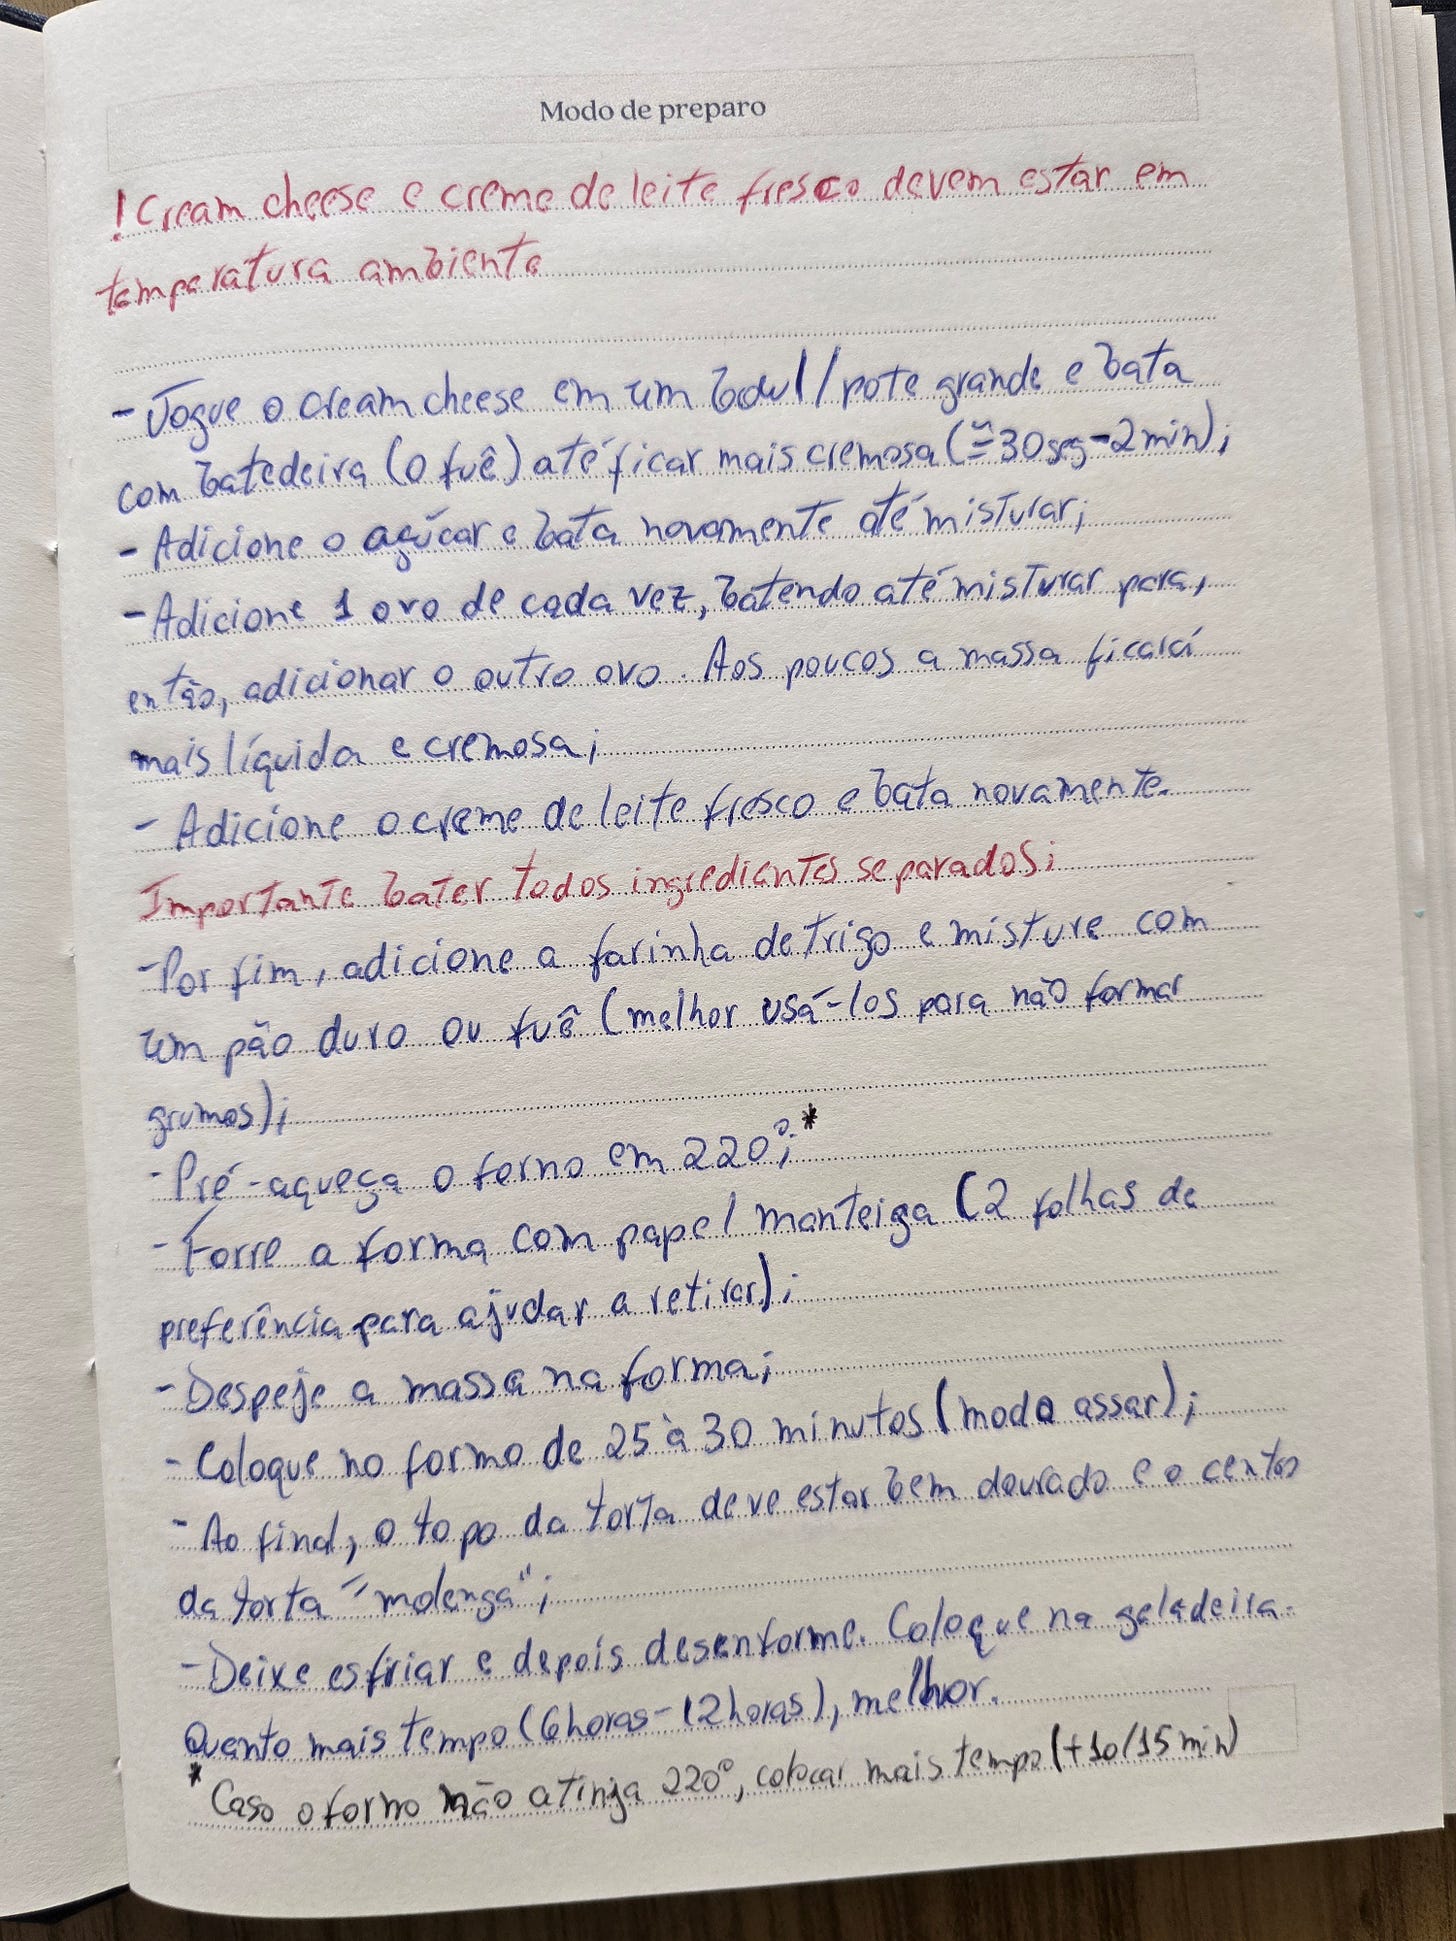 Modo de preparo
! Cream cheese e creme de leite fresco devem estar em
temperatura ambiente
- Jogue o cream cheese em um bowl/pote grande e bata
com batedeira (o fuê) até ficar mais cremosa (≅30seg-2min);
- Adicione o açúcar e bata novamente até misturar;
- Adicione 1 ovo de cada vez, batendo até misturar para,
então, adicionar o outro ovo. Aos poucos a massa ficará
mais líquida e cremosa;
- Adicione o creme de leite fresco e bata novamente.
Importante bater todos ingredientes separados;
- Por fim, adicione a farinha de trigo e misture com
um pão duro ou fuê (melhor usá-los para não formar
grumos);
- Pré-aqueça o forno em 220°;*
- Forre a forma com papel manteiga (2 folhas de
preferência para ajudar a retirar);
- Despeje a massa na forma;
- Coloque no forno de 25 à 30 minutos (modo assar);
- Ao final, o topo da torta deve estar bem dourado e o centro
da torta "molenga";
- Deixe esfriar e depois desenforme. Coloque na geladeira.
Quanto mais tempo (6horas-12horas), melhor.
* Caso o forno não atinja 220°, colocar mais tempo (+10/15min)